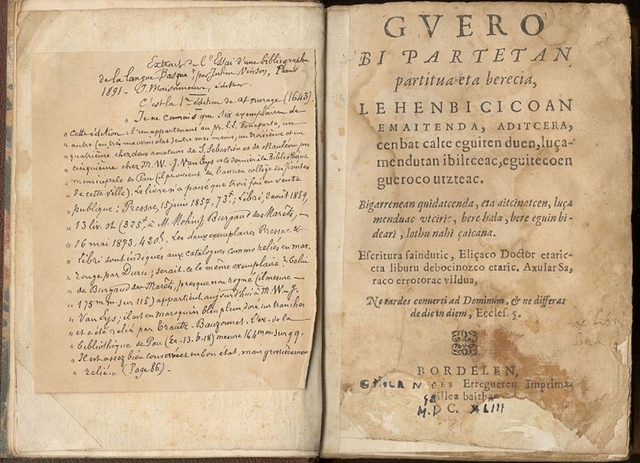 Extrait de l'"Essai d'une bibliographie
de la langue Basque", par Julien Vinson, Paris
1891 - J. Maisonneuve, éditeur
C'est la 1re édition de cet ouvrage (1643).
" Je ne connais que six exemplaires de
" cette édition: l'un appartenant au pr. L.L. Bonaparte, un
" autre entre mes mains, un troisième et un
" quatrième chez deux amateurs de St Sébastien et de Mauléon, un
" cinquième chez M. W. J. Van Eys et le dernier à la Bibliothèque
" municipale de Pau (il provient de l'ancien collège des jésuites
" de cette ville). Le livre n'a passé que trois fois en vente
" publique: Pressac, 15 juin 1857, 73f; Libri, 2 août 1859,
" 13 liv. st (325f, à M. Molini); Burgaud des Marets,
" 16 mai 1873, 420f. Les deux exemplaires Pressac &
" Libri sont indiqués aux catalogues comme reliés en mar.
" rouge par Duru; serait-ce le même exemplaire? Celui
" de Burgaud des Marets, presque non rogné (il mesure
" 175mm sur 115) appartient aujourd'hui à M. W. J.
" Van Eys; il est en maroquin bleu plein doré sur tranches
" et a été relié par Trautz-Bauzonnet. L'ex. de la
" bibliothèque de Pau (Ee. 13. b. 18) mesure 164mm sur 99.
" Il est assez bien conservé et en bon état, mais grossièrement
" relié... (Page 86).
GVERO
BI PARTETAN
partitua eta berecia,
LEHENBICICOAN
EMAITENDA, ADITCERA,
cenbat calte eguiten duen, luça-
mendutan ibiltceac, eguitecoen
gueroco utzteac.
Bigarrenean quidatcenda, eta aitcinatcen, luça
menduac utciric, bere hala, bere eguin bi-
deari, lothu nahi çaicana.
Escritura sainduric, Eliçaco Doctor etaric-
eta liburu debocinozco etaric. Axular Sa,
raco errotorac vildua,
Ne tardes conuerti ad Dominum, & ne differas
de die in diem, Eccles. 5.
BORDELEN,
GUILLEN Erregueren Imprima-
gillea baithan
M.DC. XLIII